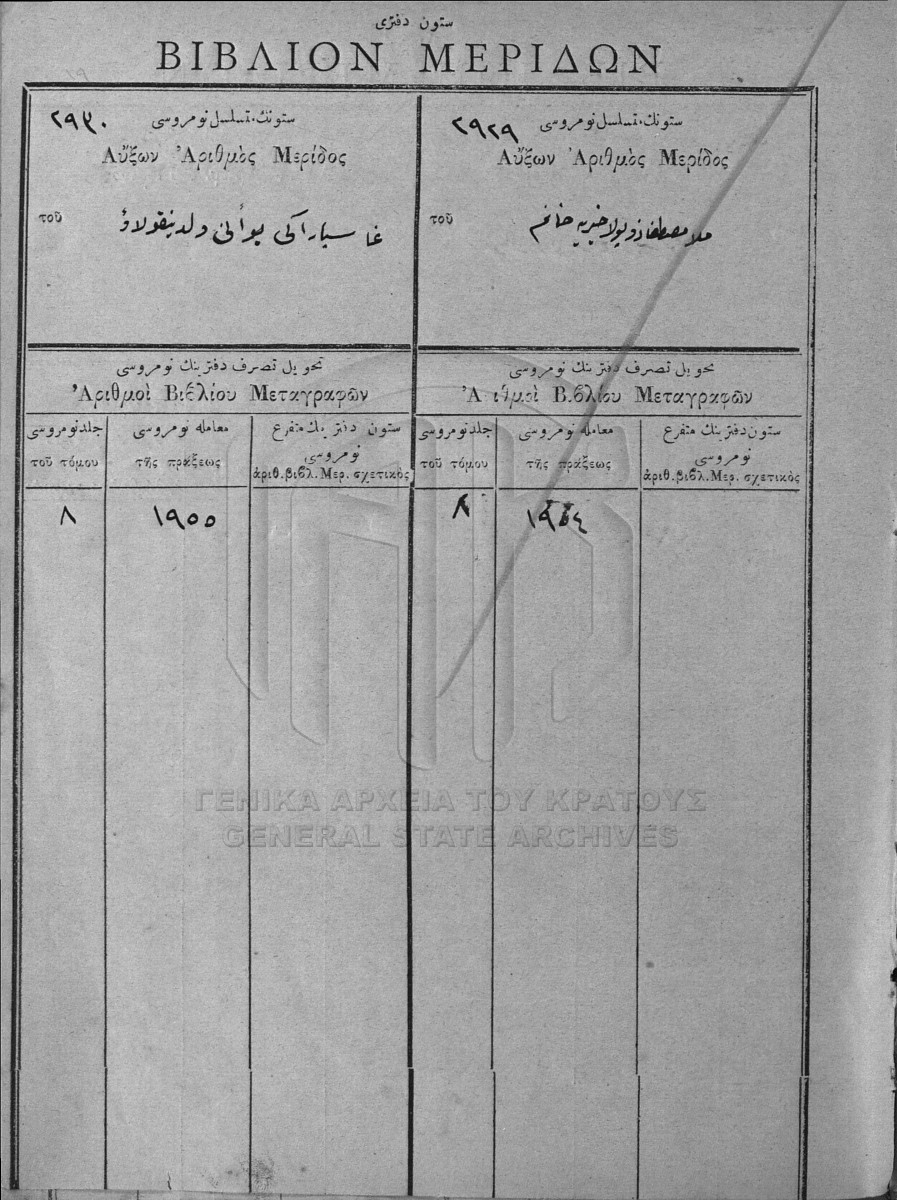 ستون دفتری
ΒΙΒΛΙΟΝ ΜΕΡΙΔΩΝ
ستونك تسلسل نومروسی ٢٩٢٩
Αὔξων Ἀριθμὸς Μερίδος
τοῦ
ملا مصطفا خیریه خانم
تحویل تصرف دفترینك نومروسی
Ἀ ιθμοὶ Βιβλίου Μεταγραφῶν
ستون دفترینك متفرع نومروسی
معامله نومروسی
جلد نومروسی
τοῦ τόμου
τῆς πράξεως
ἀριθ. βιβλ. Μερ. σχετικὸς
٨
١٩٥٤
ستونك تسلسل نومروسی ٢٩٣٠
Αὔξων Ἀριθμὸς Μερίδος
τοῦ
یوانی ولد نیقولاؤ
تحویل تصرف دفترینك نومروسی
Ἀριθμοὶ Βιβλίου Μεταγραφῶν
ستون دفترینك متفرع نومروسی
معامله نومروسی
جلد نومروسی
τοῦ τόμου
τῆς πράξεως
ἀριθ. βιβλ. Μερ. σχετικὸς
٨
١٩٥٥
ΓΕΝΙΚΑ ΑΡΧΕΙΑ ΤΟΥ ΚΡΑΤΟΥΣ
GENERAL STATE ARCHIVES